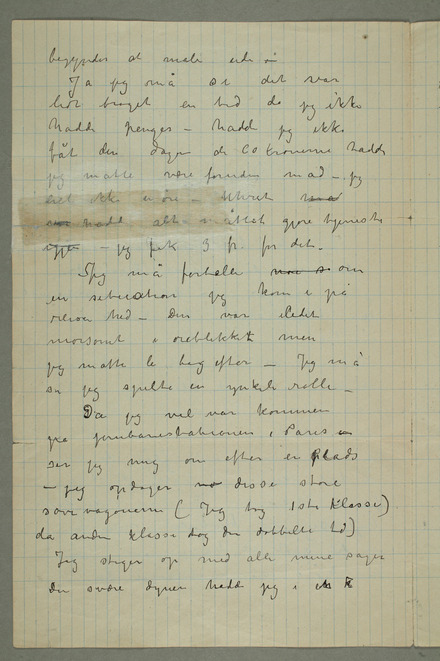 begynder at male ude i
Ja jeg må si det var
lidt braget en tid da jeg ikke
hadde penger – hadde jeg ikke
fåt den dagen de 60 kronerne hadde
jeg matte være foruden mad – jeg
ikke
hadde alt måttet gjøre tjeneste
– jeg fik 3 fr. for det.
Jeg må fortelle om
en situation jeg kom i på
reisen hid – Den var ikke
morsomt i øieblikket men
jeg matte le bag efter – Jeg må
si jeg spilte en ynkelig rolle –
Da jeg vel var kommen
på jernbanestationen i Paris
ser jeg mig om efter en plads
– jeg opdager disse store
sovevagonerne (Jeg tog 1ste klasse)
da anden klasse tog den dobbelte tid)
Jeg stiger op med alle mine sager
den svære dynen hadde jeg i